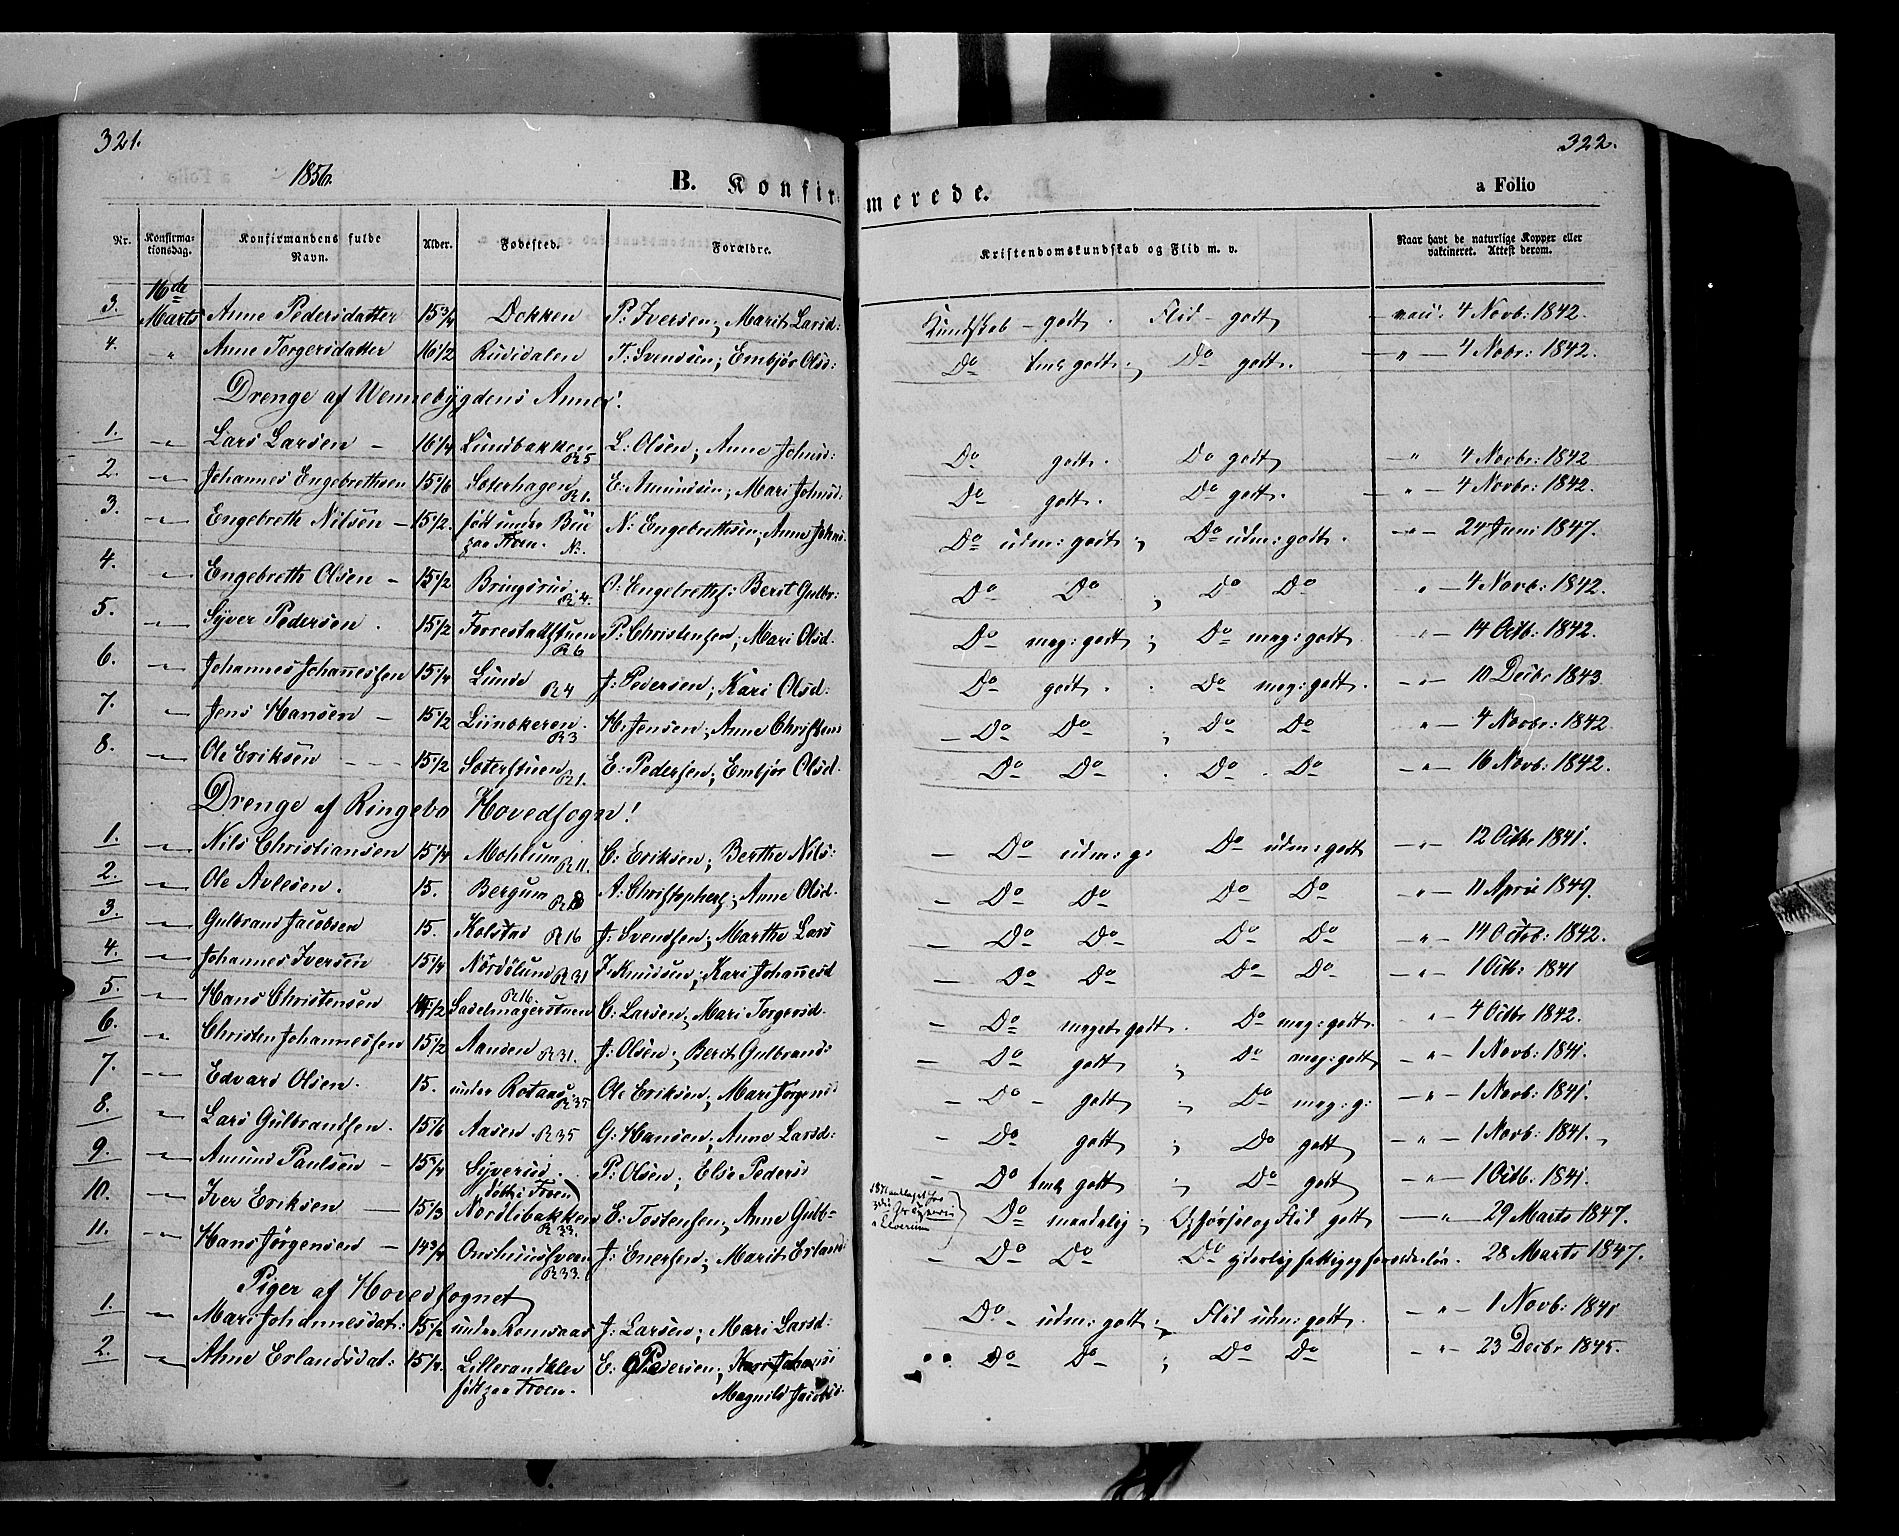 321.
322.
1856.
B. Konfir-
merede.
a Folio
Nr. Konfirma-tionsdag. Konfirmandens fulde Navn. Alder. Fødested. Forældre. Kristendomskundskab og Flid m. v. Naar havt de naturlige Kopper eller vakcineret. Attest derom.
3. 16de Marts Anne Pedersdatter 15 3/4 Dokken P: Iversen; Marit Larsd: Kundskab - godt. Flid - godt vacc. 4 Novb: 1842.
4. " Anne Torgersdatter 16 1/2 T: Svendsen; Embjør Olsd: Do tml: godt; Do godt. — " — 4 Nobr: 1842.
Drenge af Vennebygdens Annex!
1. Lars Larsen - 16 1/4 Lundbakken R 5 L: Olsen; Anne Johnsd: Do godt. Do godt " 4 Novbr: 1842
2. Johannes Engebrethsen 15 1/6 Soterhagen R 1. E: Amundsen; Mari Johnsd: Do godt. Do godt. — " — 4 Novbr: 1842.
3. Engebreth Nilsen - 15 1/2. født under Bue paa Froen. N: N: Engebrethsen; Anne Johns Do udm: godt; Do udm: godt. — " — 24 Juni 1847.
4. Engebreth Olsen - 15 1/2 Bringsrud R 4. O: Engebrethf: Berit Gulbr: Do Do ; Do Do " — 4 Novb: 1842.
5. Syver Pedersen. 15 1/2 Forrestadstuen R 6 P: Christensen; Mari Olsd. Do meg: godt; Do meg: godt. " — 14 Octb: 1842.
6. Johannes Johannessen 15 1/4 Lunde R 4 J: Pedersen; Kari Olsd: Do godt. Do meg: godt. — " — 10 Decbr 1843.
7. Jens Hansen - 15 1/2 R 3 H: Jensen; Anne Christens Do Do ; Do Do " — 4 Novbr: 1842
8. Ole Eriksen - - - 15 1/2 Soterstuen R 1. E: Pedersen; Embjør Olsd. Do Do . Do . Do — " — 16 Novb: 1842.
Drenge af Ringebo Hovedsogn!
1. Nils Christiansen 15 1/4 Mohlum R 11. C: Eriksen; Berthe Nils: — Do udm: g: Do udm: godt — " — 12 Octbr 1841.
2. Ole Avlesen. 15. Bergum A: Christophers; Anne Olsd. — Do Do Do Do " — 11 April 1849.
3. Gulbrand Jacobsen 15. Kolstad R 16 J: Svendsen; Marthe Lars — Do Do Do Do — " — 14 Octob: 1842.
4. Johannes Iversen 15 1/4 Nordslund R 31 I: Knudsen; Kari Johannesd — Do Do Do Do — " — 1 Octb: 1841
5. Hans Christensen R 16. Sadelmagerstuen C: Larsen; Mari Torgersd. — Do meget godt. Do meg: godt. " — 4 Octbr 1842.
6. Christen Johannessen 15 1/2 Aanden R 31. J: Olsen; Berit Gulbrands — Do godt ; Do meg: godt — " — 1 Novb: 1841.
7. Edvard Olsen. 15. under Rotaas R 35 Ole Eriksen; Mari Jørgens — Do - godt ; Do meg: g: — " — 1 Novb: 1841.
8. Lars Gulbrandsen. 15 1/6 Aasen R 35 G: Hansen; Anne Larsd: — Do godt ; Do godt — " — 1 Novb: 1841.
9. Amund Paulsen - Syverud. P: Olsen; Else Pedersd — Do tml: godt ; Do godt " — 1 Octb. 1841.
10. Iver Eriksen — 15 1/3 (født i Froen) Nordlibakken R 33. E: Tostensen; Anne Gulb= Do maadelig; Opførsel og Flid godt — " — 29 Marts 1847.
11. Hans Jørgensen - 14 3/4 R 33. J: Enersen; Marit Erlands — Do Do Do yderlig fattig og forældreløs. 28 Marts 1847.
Piger af Hovedsognet
1. Mari Johannesdat: 15 1/2 under Romsaas J: Larsen; Mari Larsd: Do - udm: godt; Flid udm: godt. — " — 1 Novb: 1841
2. Anne Erlandsdat: 15 1/4. født paa Froen. E: Pedersen; Magnild Jacobsd. Do Do ; Do Do — " — 23 Decbr 1845.